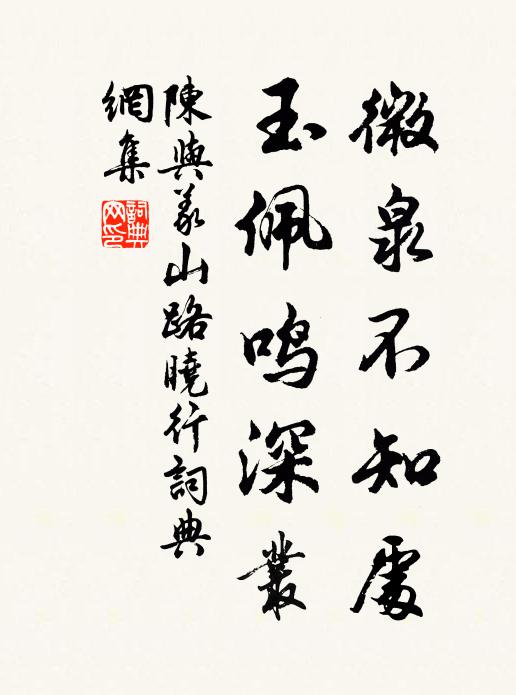 微泉不知處
玉佩鳴深叢
陳與義山路曉行詞典
網集
詞典網印